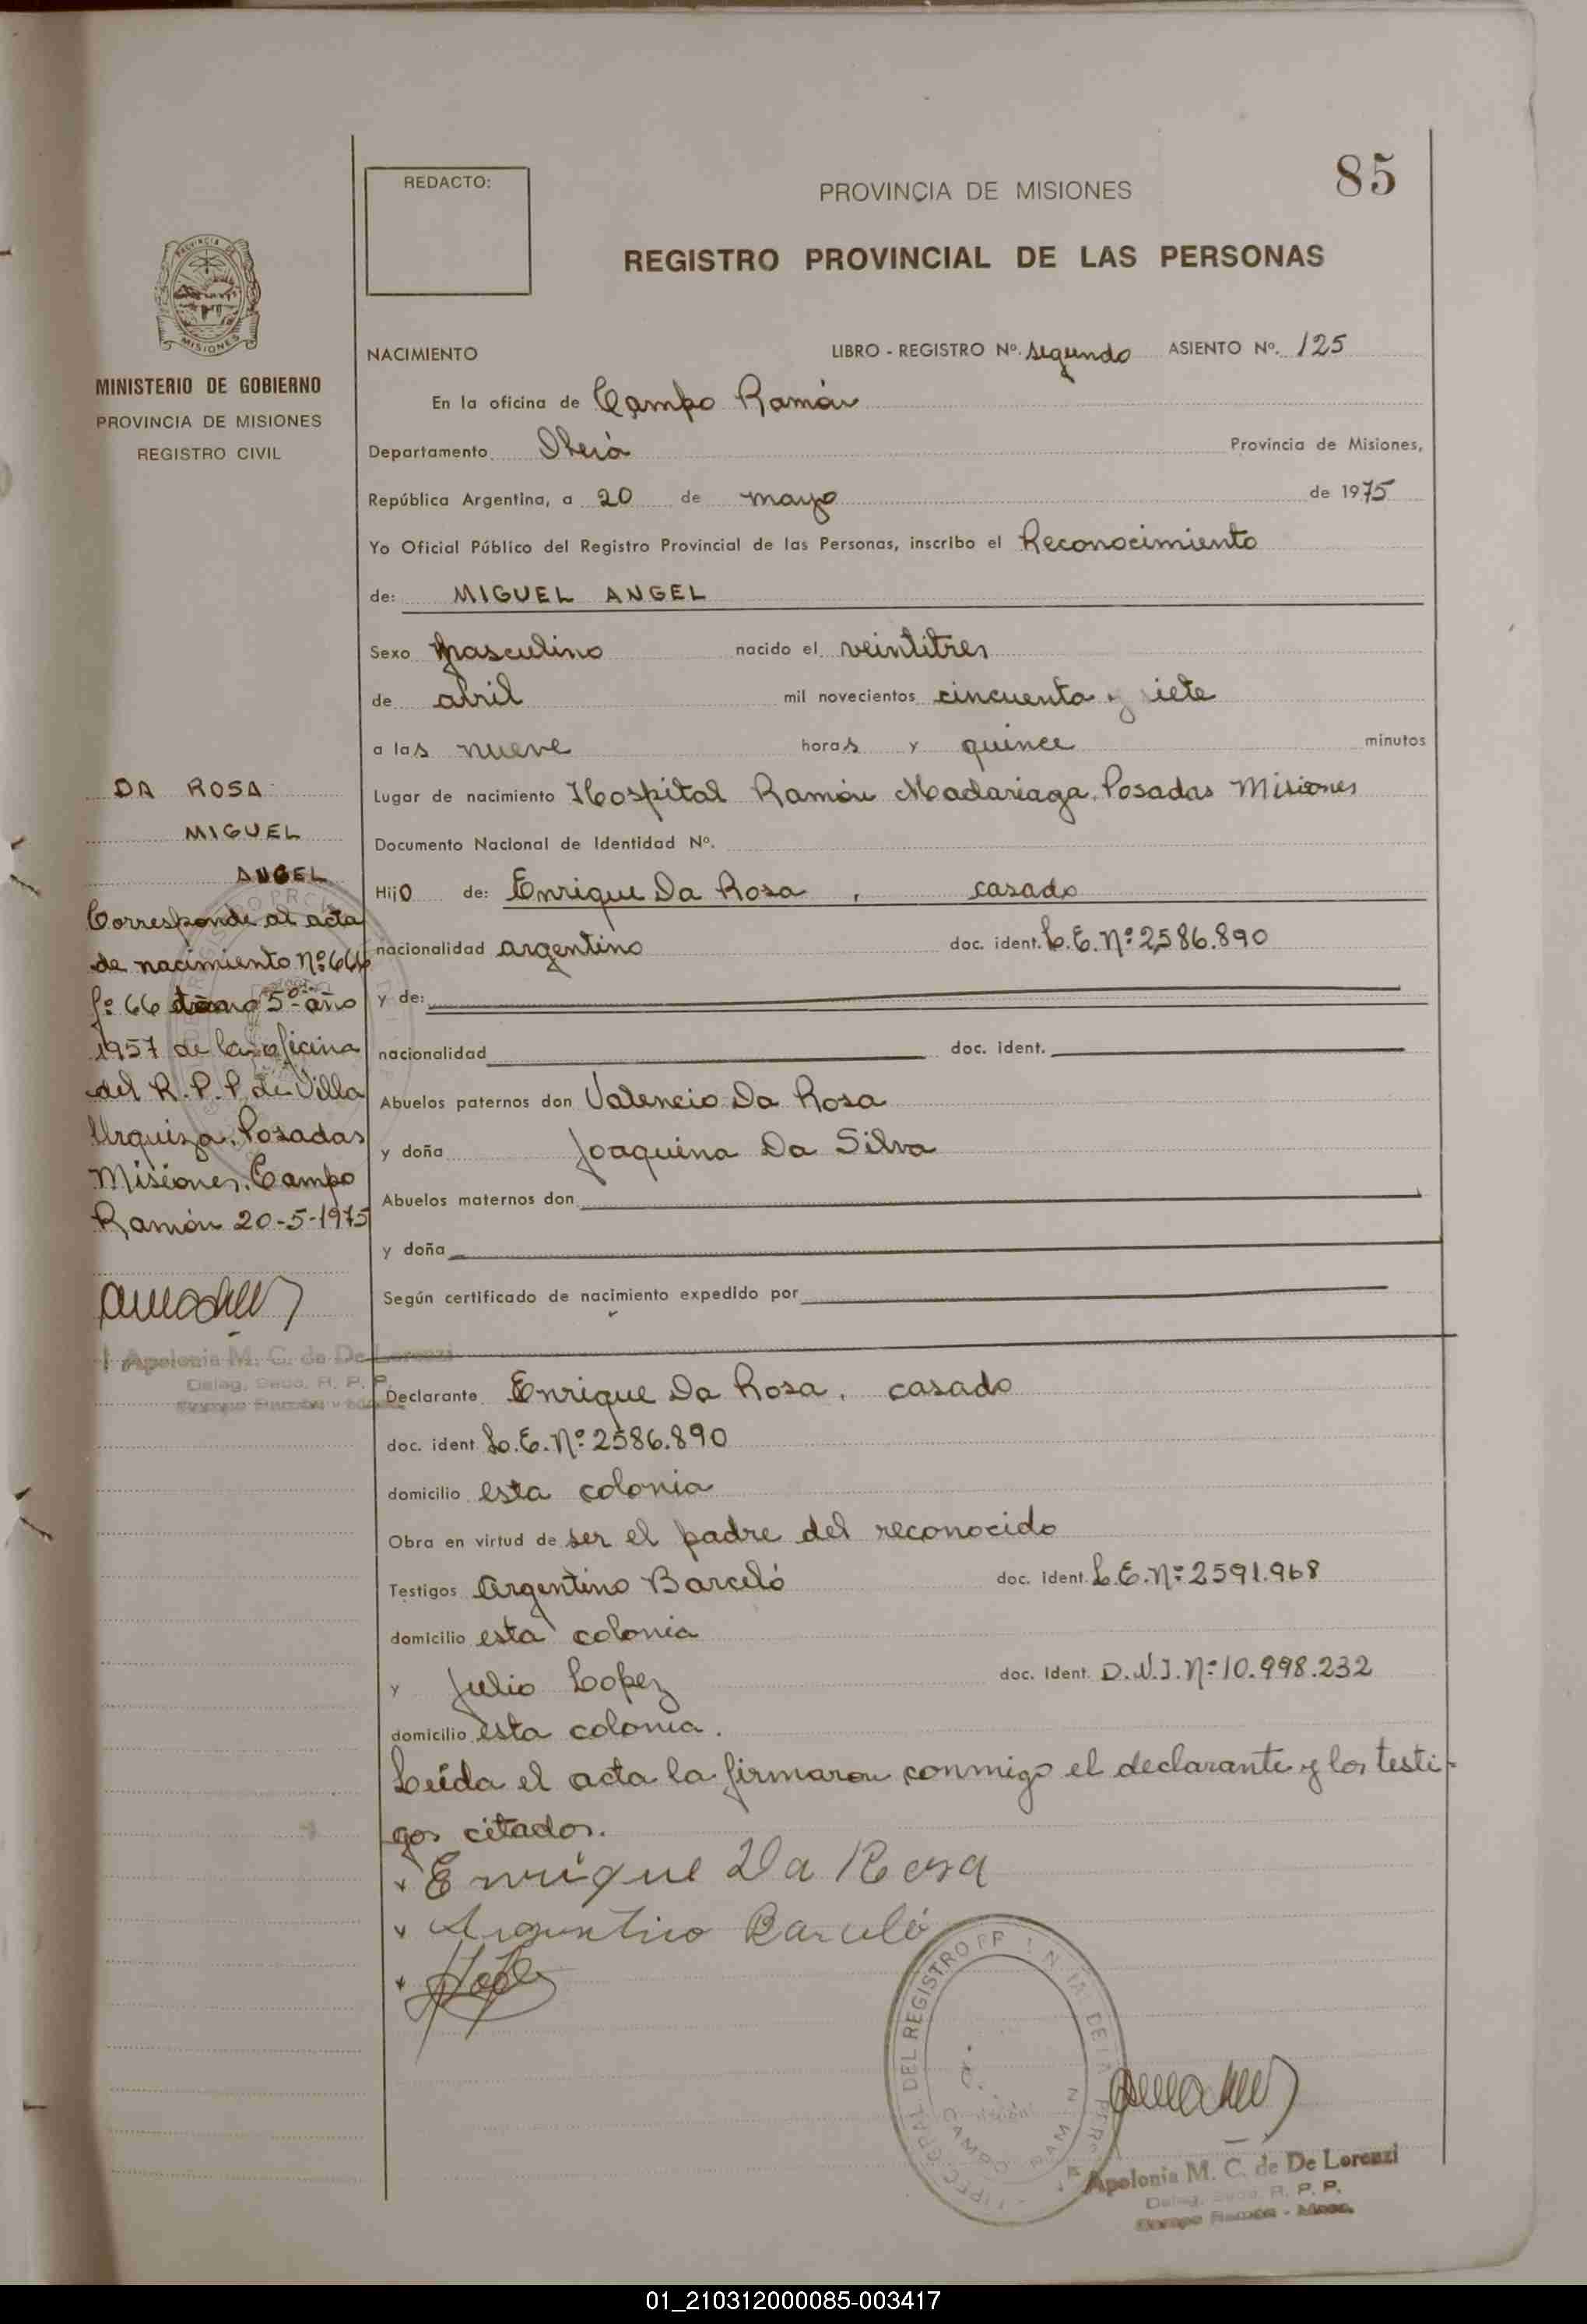 85
REDACTO:
PROVINCIA DE MISIONES
REGISTRO PROVINCIAL DE LAS PERSONAS
PROVINCIA DE
MISIONES
MINISTERIO DE GOBIERNO
PROVINCIA DE MISIONES
REGISTRO CIVIL
NACIMIENTO LIBRO - REGISTRO Nº. segundo ASIENTO Nº. 125
En la oficina de Campo Ramón
Departamento Oberá Provincia de Misiones,
República Argentina, a 20 de mayo de 1975
Yo Oficial Público del Registro Provincial de las Personas, inscribo el Reconocimiento
de: MIGUEL ANGEL
Sexo masculino nacido el veintitres
de abril mil novecientos cincuenta y siete
a las nueve horas y quince minutos
Lugar de nacimiento Hospital Ramón Madariaga, Posadas Misiones
Documento Nacional de Identidad Nº.
Hijo de: Enrique Da Rosa, casado
nacionalidad argentino doc. ident. L.E. Nº 2586.890
y de:
nacionalidad doc. ident.
Abuelos paternos don Valencio Da Rosa
y doña Joaquina Da Silva
Abuelos maternos don
y doña
Según certificado de nacimiento expedido por
Declarante Enrique Da Rosa, casado
doc. ident L.E. Nº 2586.890
domicilio esta colonia
Obra en virtud de ser el padre del reconocido
Testigos Argentino Barceló doc. ident. L.E. Nº 2591.968
domicilio esta colonia
y Julio Lopez doc. ident. D.N.I. Nº 10.998.232
domicilio esta colonia.
Leída el acta la firmaron conmigo el declarante y los testi-
gos citados.
Enrique Da Rosa
Argentino Barceló
DEL REGISTRO
CAMPO RAMON
Apolonia M. C. de De Lorenzi
Deleg. Secc. R. P. P.
Campo Ramón - Mnes.
DA ROSA
MIGUEL
ANGEL
Corresponde al acta
de nacimiento Nº 666
fº 66 tomo 5º año
1957 de la oficina
del R.P.P. de Villa
Urquiza, Posadas
Misiones. Campo
Ramón 20-5-1975
Apolonia M. C. de De Lorenzi
Deleg. Secc. R. P. P.
Campo Ramón - Mnes.
01_210312000085-003417